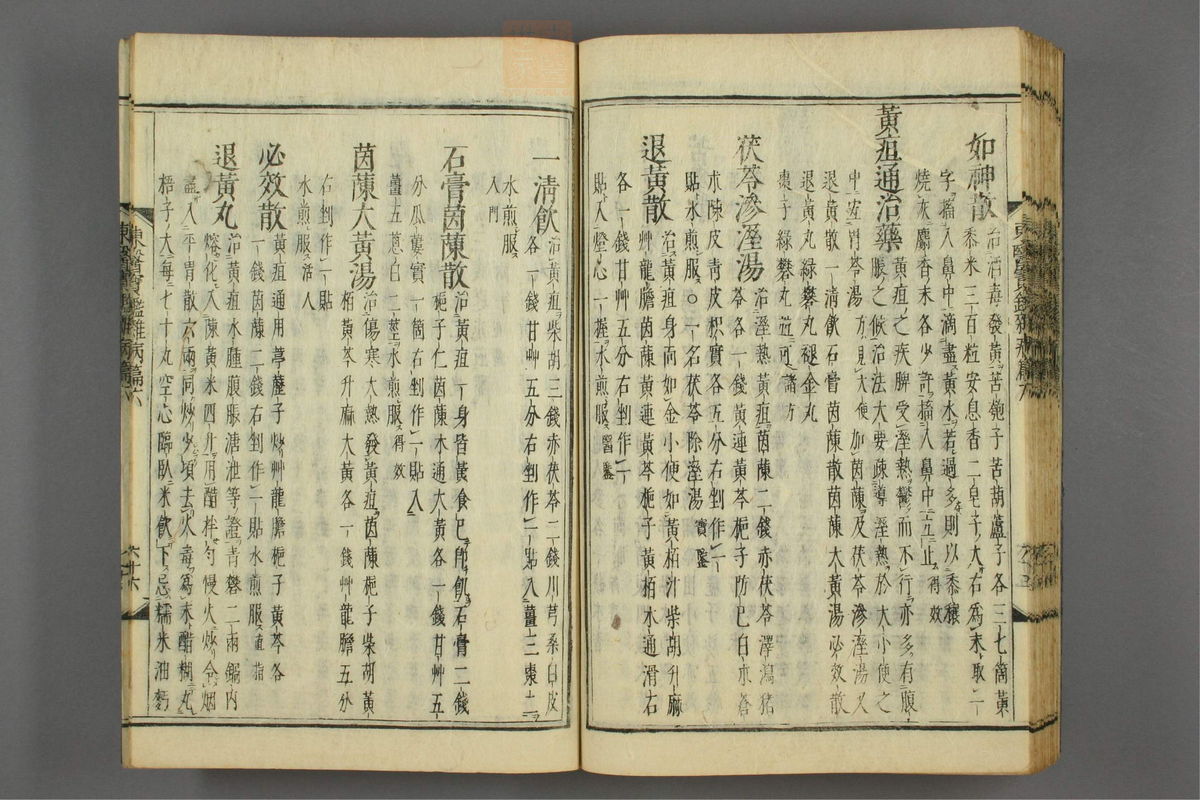 如神散治酒毒發黃苦瓠子苦葫蘆子各三七箇黃
黍米三百粒安息香二皂子大右爲末取一
字搐入鼻中滴盡黃水若過多則以黍穰
燒灰麝香末各少許搐入鼻中立止得效
黃疸通治藥黃疸之疾脾受溼熱鬱而不行亦多有腹
脹之候治法大要疎導溼熱於大小便之
中宜胃苓湯方見大便加茵蔯及茯苓滲溼湯又
退黃散一清飮石膏茵蔯散茵蔯大黃湯必效散
退黃丸綠礬丸褪金丸
棗子綠礬丸並可諸方
茯苓滲溼湯治溼熱黃疸茵蔯二錢赤茯苓澤瀉猪
苓各一錢黃連黃芩梔子防己白朮蒼
朮陳皮靑皮枳實各五分右剉作一
貼水煎服○一名茯苓除溼湯寶鑑
退黃散治黃疸身面如金小便如黃栢汁柴胡升麻
艸龍膽茵蔯黃連黃芩梔子黃栢木通滑石
各一錢甘艸五分右剉作一
貼入燈心一握水煎服醫鑑
一淸飮治黃疸柴胡三錢赤茯苓二錢川芎桑白皮
各一錢甘艸五分右剉作一貼入薑三棗二
水煎服
入門
石膏茵蔯散治黃疸一身皆黃食已卽飢石膏二錢
梔子仁茵蔯木通大黃各一錢甘艸五
分瓜蔞實一箇右剉作二貼入
薑五葱白二莖水煎服得效
茵蔯大黃湯治傷寒大熱發黃疸茵蔯梔子柴胡黃
栢黃芩升麻大黃各一錢艸龍膽五分
右剉作一貼
水煎服活人
必效散黃疸通用葶藶子炒艸龍膽梔子黃芩各
一錢茵蔯二錢右剉作一貼水煎服直指
退黃丸治黃疸水腫腹脹溏泄等證靑礬二兩鍋內
熔化入陳黃米四升用醋拌勻慢火炒令烟
盡入平胃散六兩同炒少頃去火毒爲末醋糊丸
梧子大每七十丸空心臨臥米飮下忌糯米油麪
東醫寶鑑雜病篇六
六十六